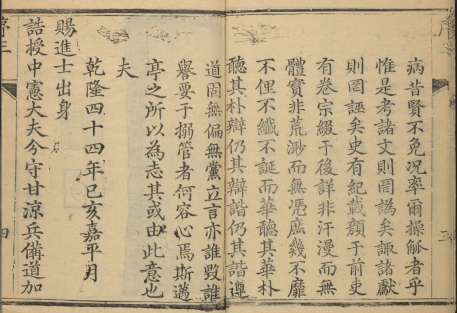 病昔賢不免況率爾操觚者乎
惟是考諸文則圖譌矣諏諸獻
則圖誣矣史有紀載顏于前史
有卷宗綴于後詳非汗漫而無
體實非荒渺而無憑庶幾不靡
不俚不纖不誕而華聽其華朴
聽其朴辯仍其辯諧仍其諧遵
道固無偏無黨立言亦誰毀誰
譽要于搦管者何容心焉斯邁
亭之所以為志其或由此意也
夫
乾隆四十四年己亥嘉平月
賜進士出身
誥授中憲大夫今守甘涼兵備道加
四